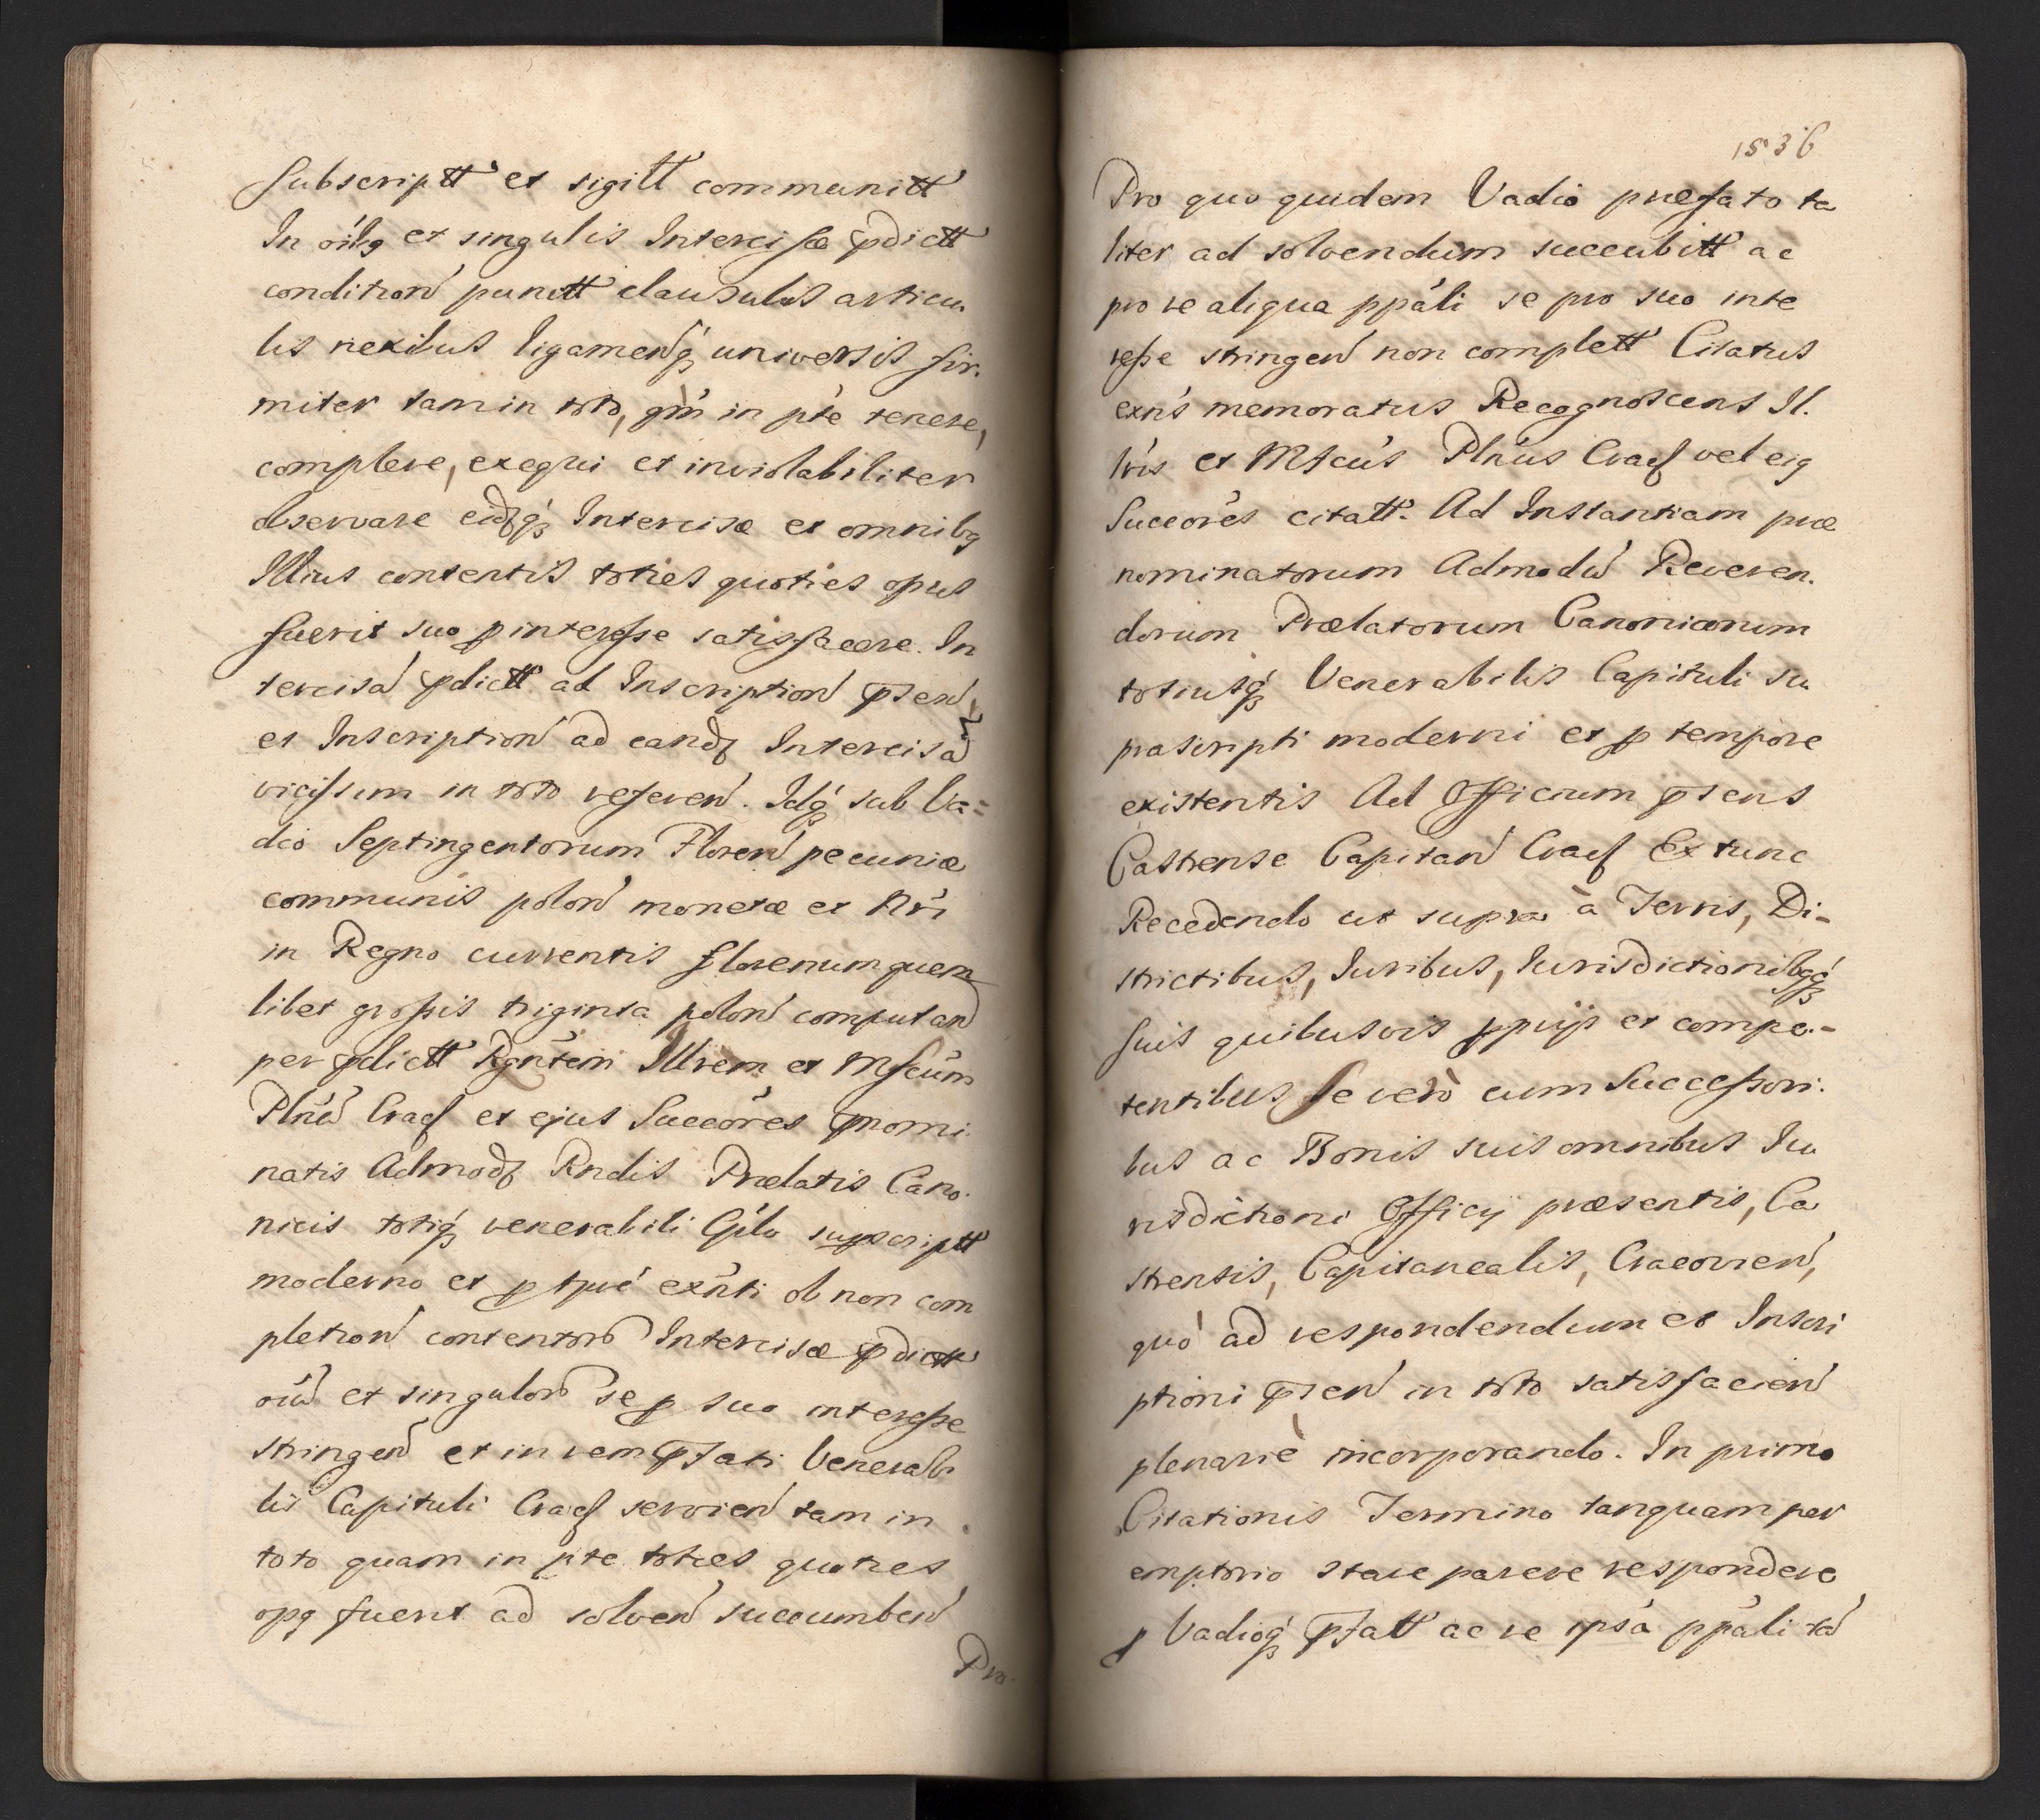 Subscriptt et sigill communitt
In oíbg et singulis Intercisæ pdictt
condition punctt clausulis articu
lis nexibus ligamenq universis fir.
miter tam in toto, qm in pte tenere,
complere, exequi et inviolabiliter
observare eidq Intercisæ et omnibg
Illius contentis toties quoties opus
fuerit suo p interesse satisfacere. In
tercisa pdictt ad Inscription pſen
et Inscription ad eand Intercisa
vicissim in toto referen. Idq sub Va=
dio Septingentorum Floren pecuniæ
communis polon monetæ et Nri
in Regno currentis florenum quem
libet grossis triginta polon computan
per pdictt Rgntem Illrem et Mfcum
Plnu Cracſ et ejus Succores pnomi
natis Admod Rndis Prælatis Cano.
nicis totiq venerabili Cplo supscriptt
moderno et p tpre exnti ob non com
pletion contentoru Intercisæ pdictt
oiu et singuloru se p suo interesse
stringen et in rem pfati Venerabi
lis Capituli Cracſ servien tam in
toto quam in pte toties quoties
opg fuerit ad solven succumben
Pro
1536
Pro quo quidem Vadio præfato ta
liter ad solvendum succubitt ac
pro re aliqua ppali se pro suo inte
resse stringen non complett Citatus
exns memoratus Recognoscens Il.
lris et Mfcus Plnus Cracſ vel eig
Succores citatt. Ad Instantiam præ
nominatorum Admodu Reveren.
dorum Prælatorum Canonicorum
totiusq Venerabilis Capituli su
prascripti moderni et p tempore
existentis Ad Officium pſens
Castrense Capitan Cracſ Ex tunc
Recedendo ut supra à Terris, Di-
strictibus, Iuribus, Iurisdictionibgq
suis quibusvis pprijs et compe-
tentibus se verò cum Successori.
bus ac Bonis suis omnibus Iu
risdictioni Officij præsentis, Ca
strensis, Capitanealis, Cracovien,
quó ad respondendum et Inscri
ptioni pſen in toto satisfacien
plenariè incorporando. In primo
Citationis Termino tanquam per
emptorio stare parere respondere
p Vadioq pfatt ac re ipsa ppali ta